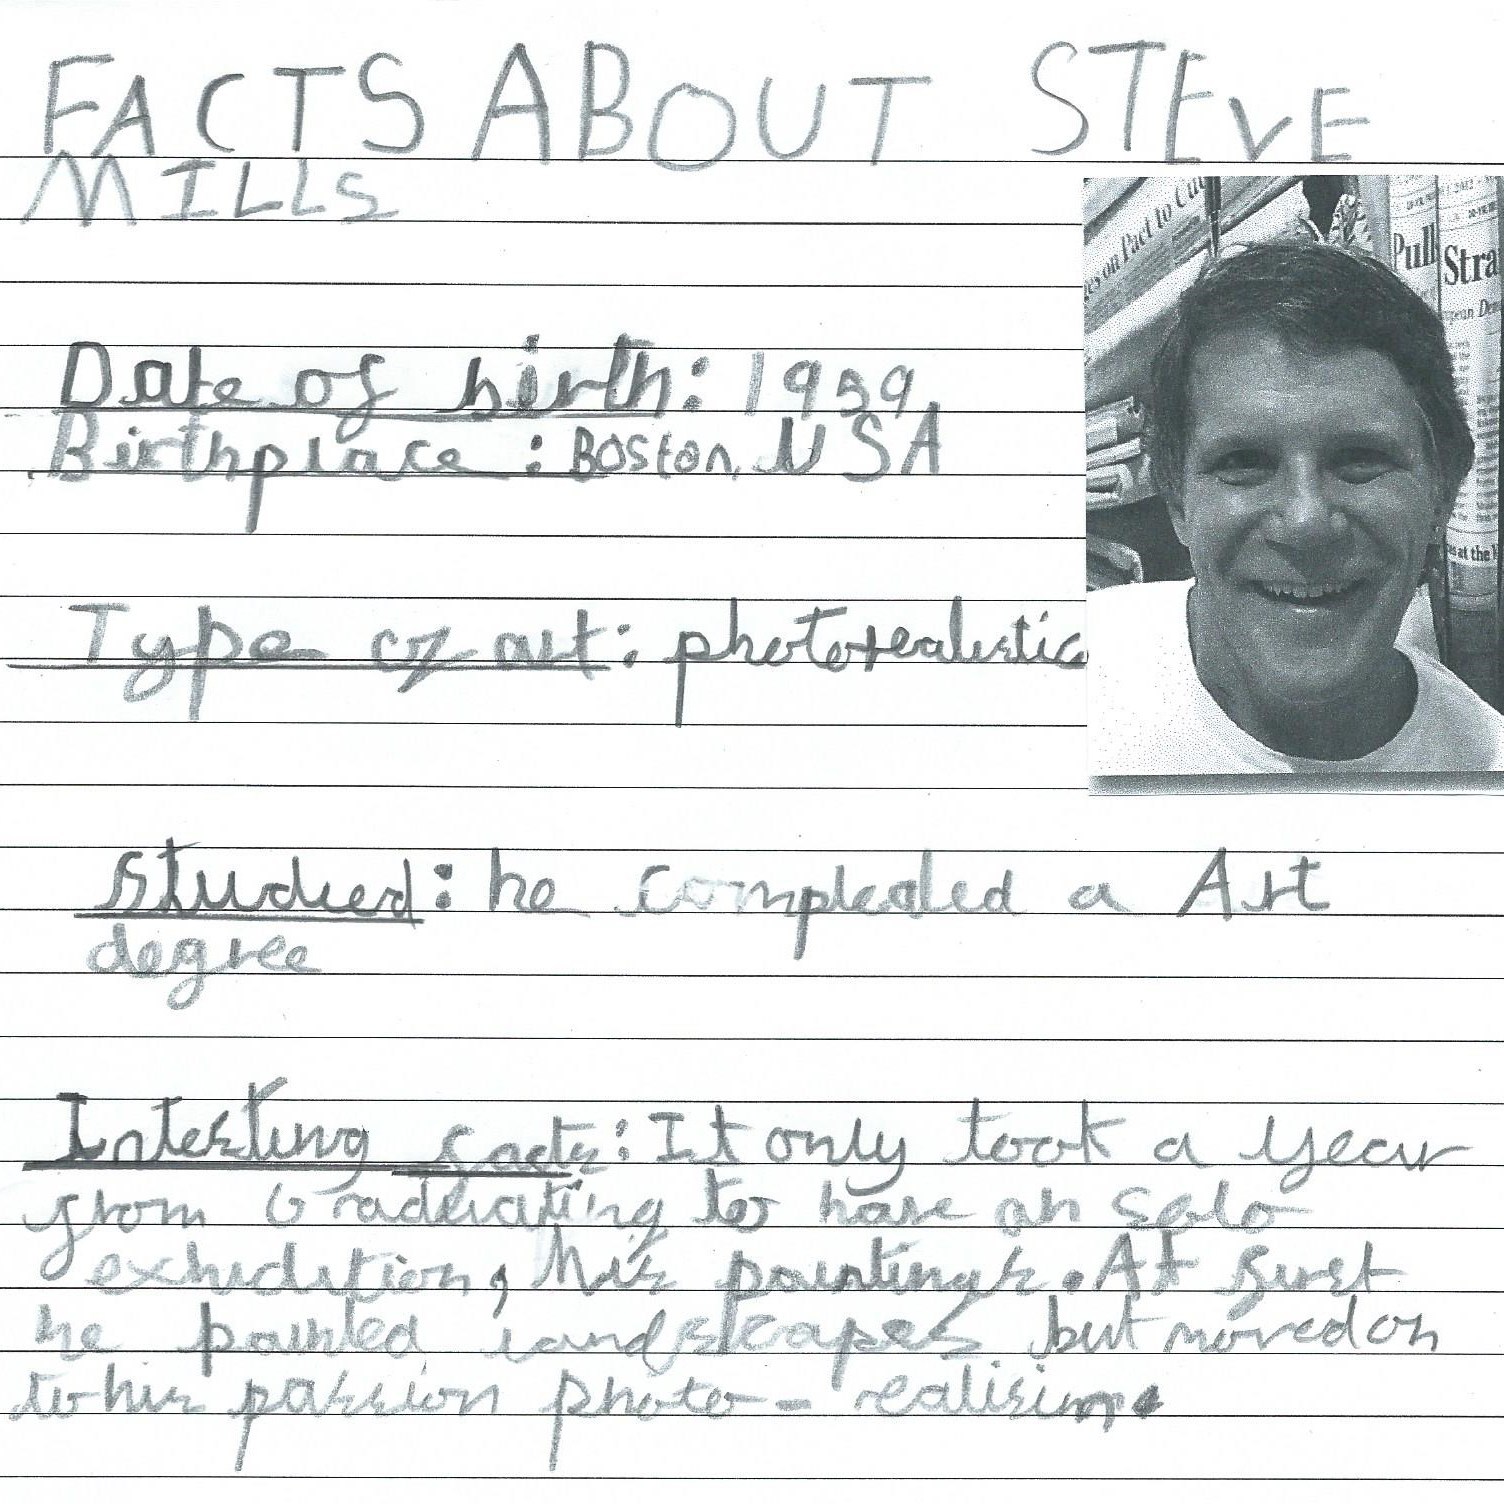 FACTS ABOUT STEVE
MILLS
es on Pact to Cut
Pull
Stra
pean De
es at the
Date of birth: 1959
Birthplace: Boston, USA
Type of art: photorealistic
Studied: he compleated a Art
degree
Intersting facts: It only took a year
from Graduating to have an solo
exhidition, his paintings. At first
he painted landscapes but moved on
to his passion photo-realisim.